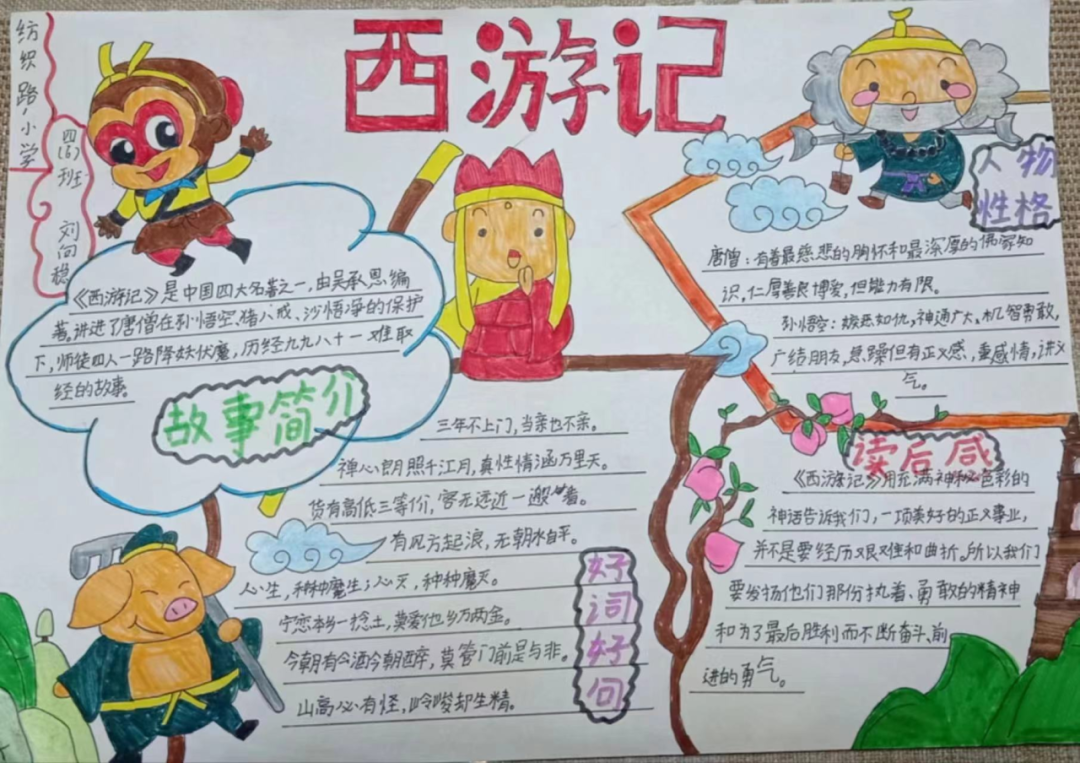 西游记
纺织路小学
四(6)班
刘向稳
《西游记》是中国四大名著之一,由吴承恩编
著。讲述了唐僧在孙悟空、猪八戒、沙悟净的保护
下,师徒四人一路降妖伏魔,历经九九八十一难取
经的故事。
故事简介
人物
性格
唐僧:有着最慈悲的胸怀和最深厚的佛家知
识,仁厚善良博爱,但能力有限。
孙悟空:嫉恶如仇,神通广大。机智勇敢,
广结朋友,急躁但有正义感,重感情,讲义
气。
三年不上门,当亲也不亲。
禅心朗照千江月,真性情涵万里天。
货有高低三等价,客无远近一般看。
有风方起浪,无潮水自平。
心生,种种魔生;心灭,种种魔灭。
宁恋本乡一捻土,莫爱他乡万两金。
今朝有酒今朝醉,莫管门前是与非。
山高必有怪,岭峻却生精。
好词好句
读后感
《西游记》用充满神秘色彩的
神话告诉我们,一项美好的正义事业,
并不是要经历艰难和曲折。所以我们
要发扬他们那份执着、勇敢的精神
和为了最后胜利而不断奋斗、前
进的勇气。